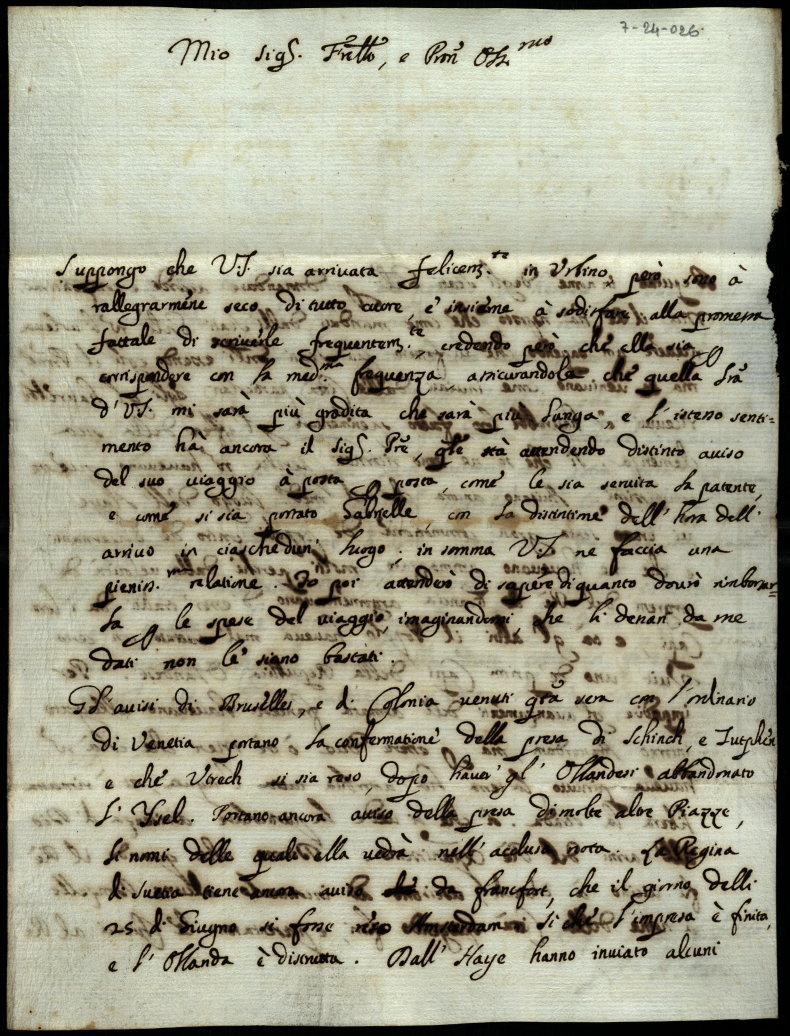 7-24-026.
Mio Sig.r Frello, e Pron Oss.mo
Suppongo che V.S. sia arrivata felicem.te in Urbino, però sono à
rallegrarmene seco di tutto cuore, e insieme à sodisfare alla promessa
fattale di scriverle frequentem.te, credendo però che ella sia p
corrispondere con la med.ma frequenza, assicurandola che quella l'ra
d'V.S. mi sarà più gradita che sarà più lunga, e l'istesso senti=
mento hà ancora il Sig.r Pre, qle stà attendendo distinto aviso
del suo viaggio à posta p posta, come le sia servita la patente,
e come si sia portato Gabrielle, con la distintione dell'hora dell'
arrivo in ciaschedun' luogo; in somma V.S. ne faccia una
pieniss.ma relatione. Io poi attenderò di sapere di quanto dovrò rimborsar=
la p le spese del viaggio, imaginandomi, che li denari da me
dati non le siano bastati.
Gl'avisi di Bruselles, e di Colonia venuti qta sera con l'ordinario
di Venetia portano la confermatione della presa di Schinch, e Zutphen
e che Utrech si sia reso, dopo haver gl'Ollandesi abbandonato
l'Ysel. Portano ancora aviso della presa di molte altre Piazze,
li nomi delle quali ella vedrà nell'acclusa nota. La Regina
di Suetia tiene ancora aviso da Francfort, che il giorno delli
25 di Giugno si fosse reso Amsterdam si che l'impresa è finita,
e l'Ollanda è distrutta. Dall'Haye hanno inviato alcuni